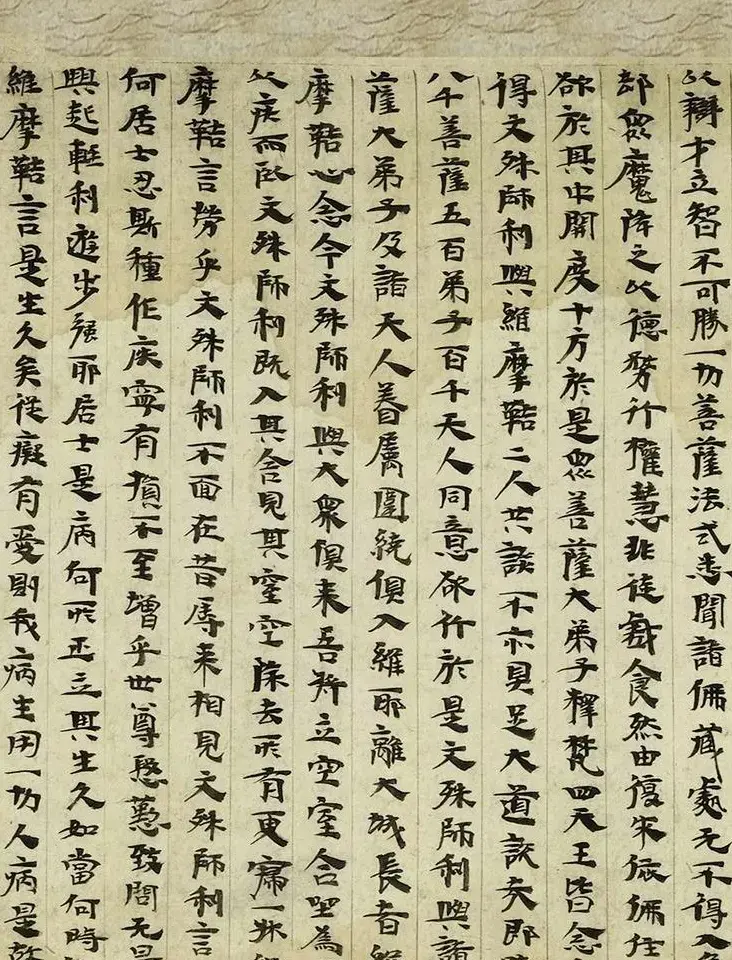 以辯才立智不可勝一切菩薩法式悉聞諸佛藏處无不得入
部眾魔降之以德務行權慧非徒戲食然由復求依佛住
欲於其中開度十方於是眾菩薩大弟子釋梵四天王皆念
得文殊師利與維摩鞊二人共談不亦具足大道說夫即
八千菩薩五百弟子百千天人同意欲行於是文殊師利與諸
薩大弟子及諸天人眷屬圍繞俱入維耶離大城長者
摩鞊心念今文殊師利與大眾俱來吾將立空室合坐為
以疾而臥文殊師利既入其舍見其室空除去所有更寢一牀
摩鞊言勞乎文殊師利不面在昔辱來相見文殊師利言
何居士忍斯種作疾寧有損不至增乎世尊慇懃致問无
興起輕利遊步强耶居士是病何所正立其生久如當何時
維摩鞊言是生久矣從癡有愛則我病生用一切人病是